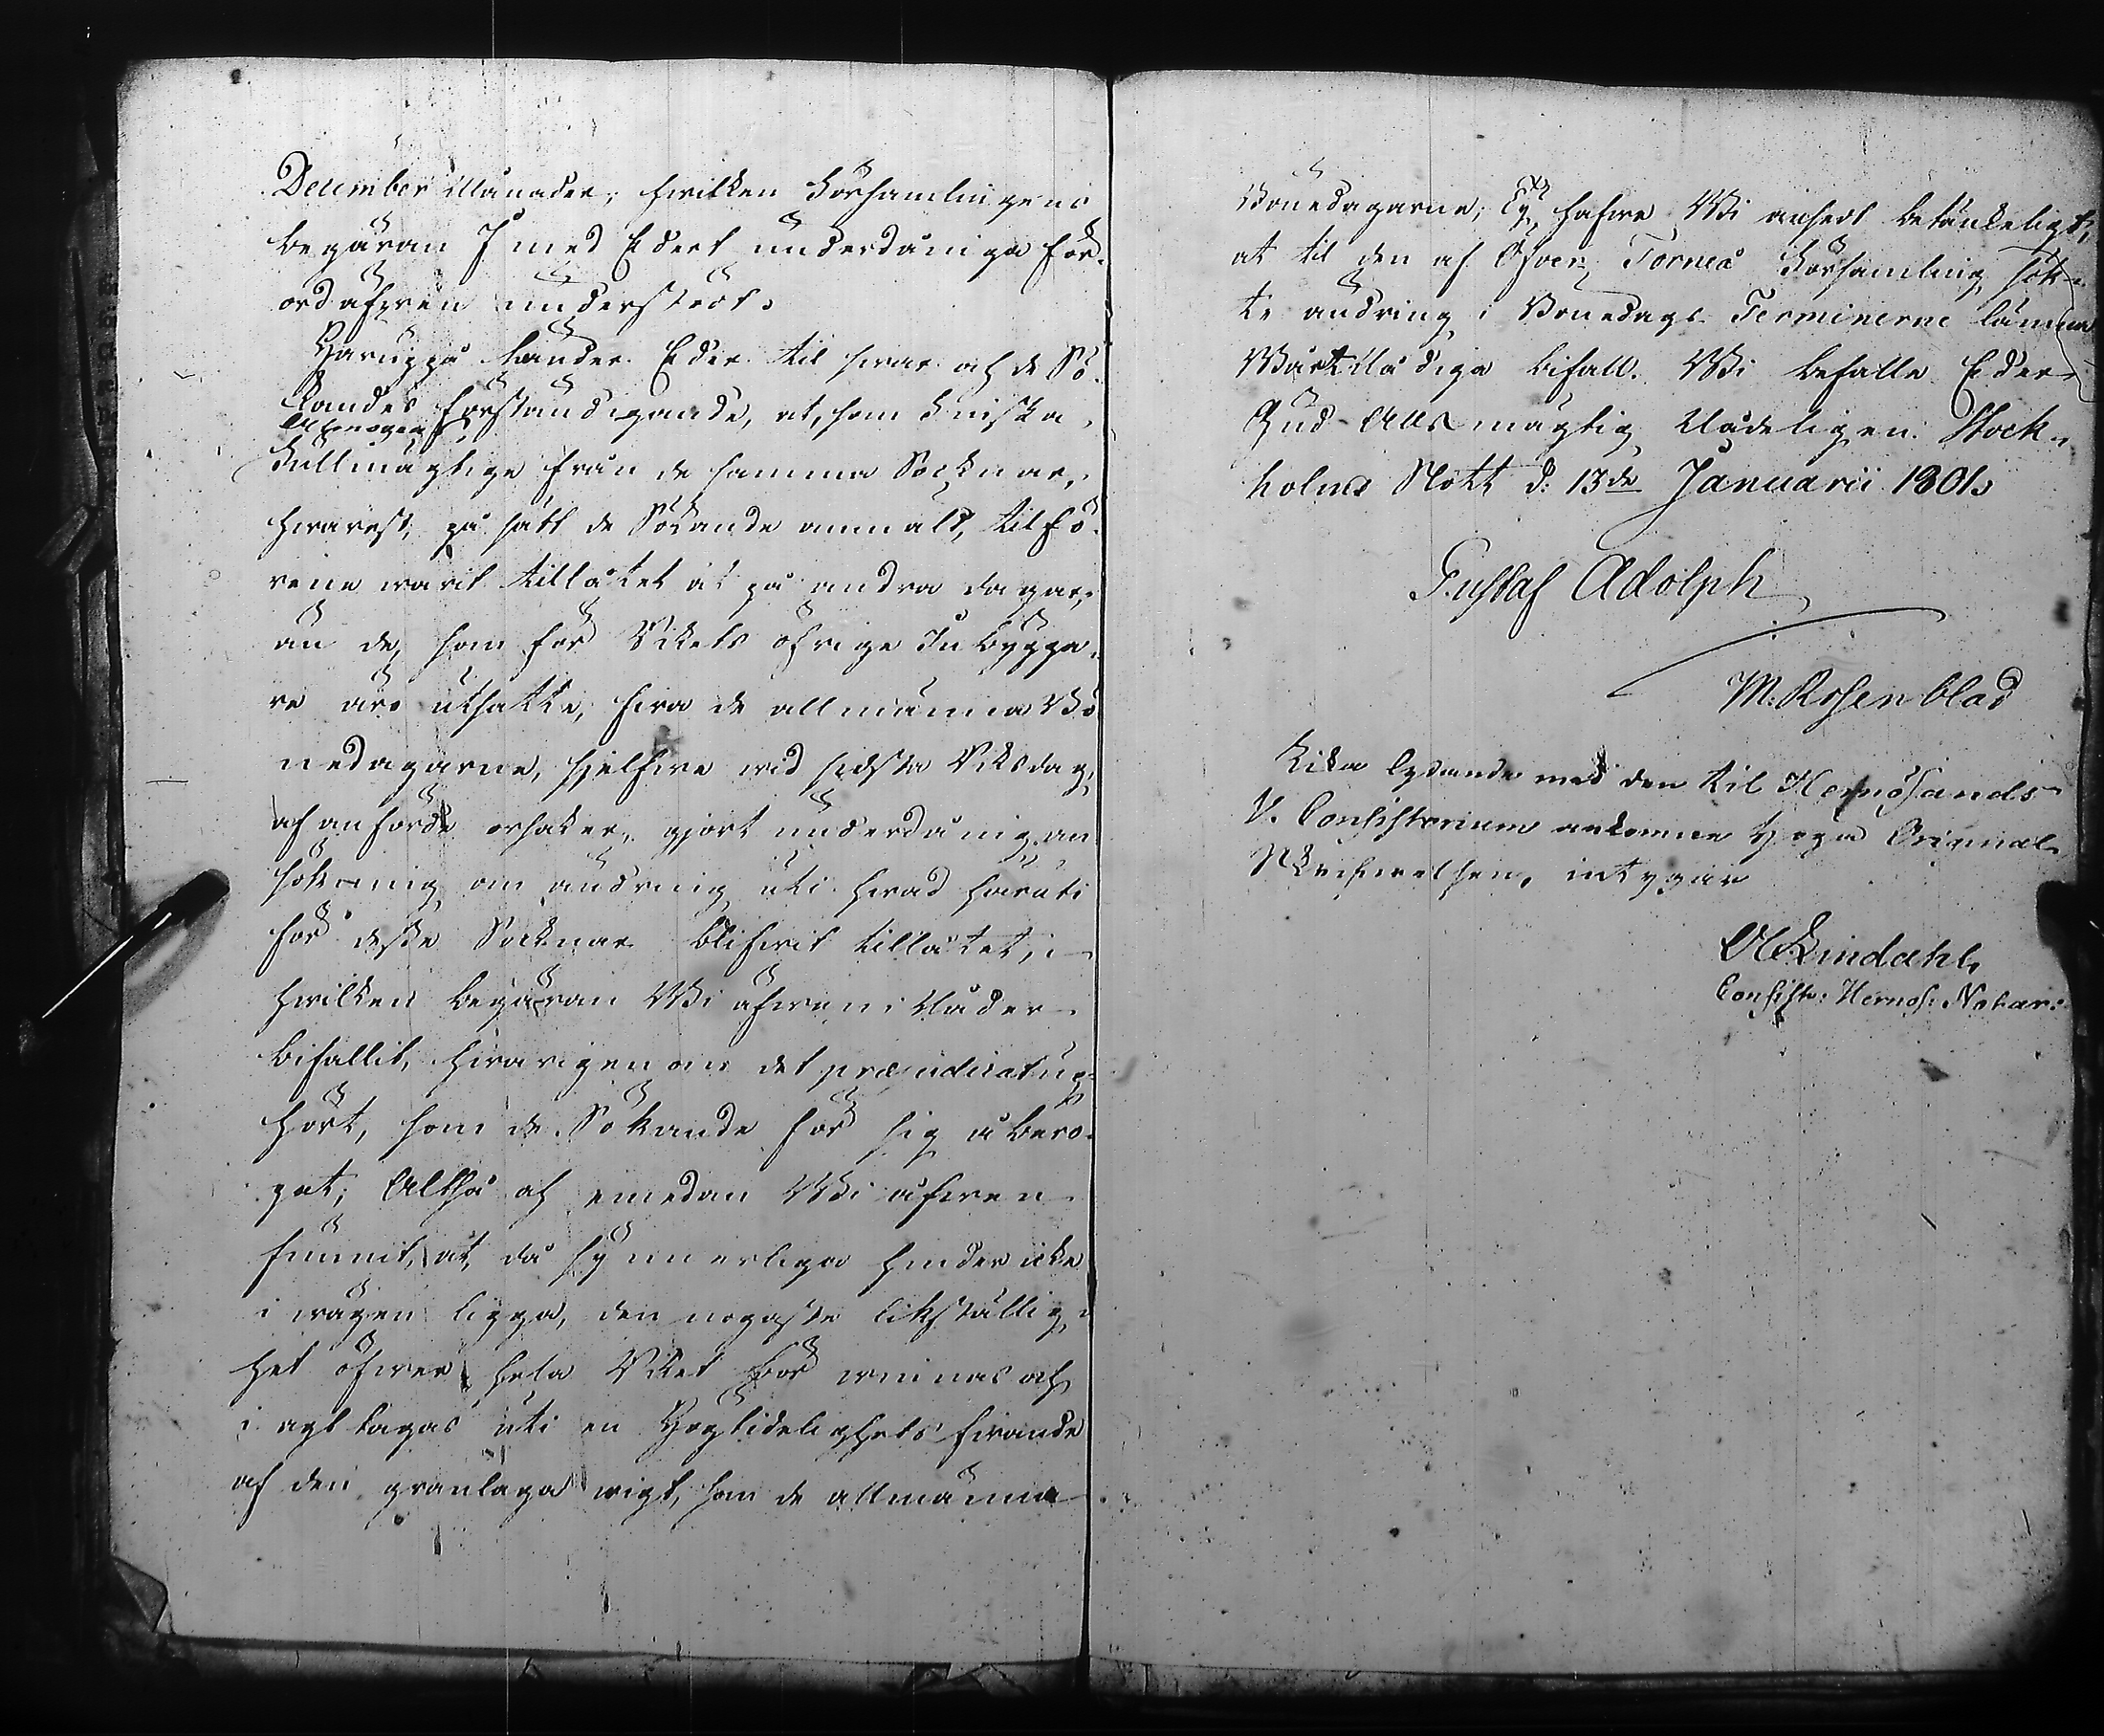 December Månader; hwilken Församlingens
begäran I med Edert underdåniga för-
ord äfwen understödt.
Häruppå länder Eder til swar och de Sö-
kandes förständigande, at, som Finska
Allmogens
Fullmägtige från de samma Socknar,
hwarest, på sätt de Sökande anmält, tilfö-
rene warit tillåtet at på andra dagar,
än de, som för Rikets öfrige Inbygga-
re äro utsatte, fira de allmänna Bö-
nedagarne, sjelfwe wid sidsta Riksdag,
af anförde orsaker, gjort underdånig an-
sökning om ändring uti hwad häruti
för desse Socknar blifwit tillåtet, i
hwilken begäran Wi äfwen i Nåder
bifallit, hwarigenom det præjudicat up-
hört, som de Sökande för sig åbero-
pat; Altså och emedan Wi äfwen
funnit, at, då synnerliga hinder icke
i wägen ligga, den nogaste likställig-
het öfwer hela Riket bör winnas och
i agt tagas uti en Högtidelighets firande
af den granlaga wigt, som de allmänna
Bönedagarne; Ty hafwe Wi ansedt betänkeligt,
at til den af Öfwer Torneå Församling sök-
te ändring i Bönedags Terminerne lämna
Wårt Nådiga bifall. Wi befalle Eder
Gud Allsmägtig Nådeligen. Stock-
holms Slott d: 13de Januarii 1801.
Gustaf Adolph
M: Rosenblad
Lika lydande med den til Hernösands
V. Consistorium ankomne höga Original
Skrifwelsen, intygar
Lindahl,
Consist: Hernös: Notar: